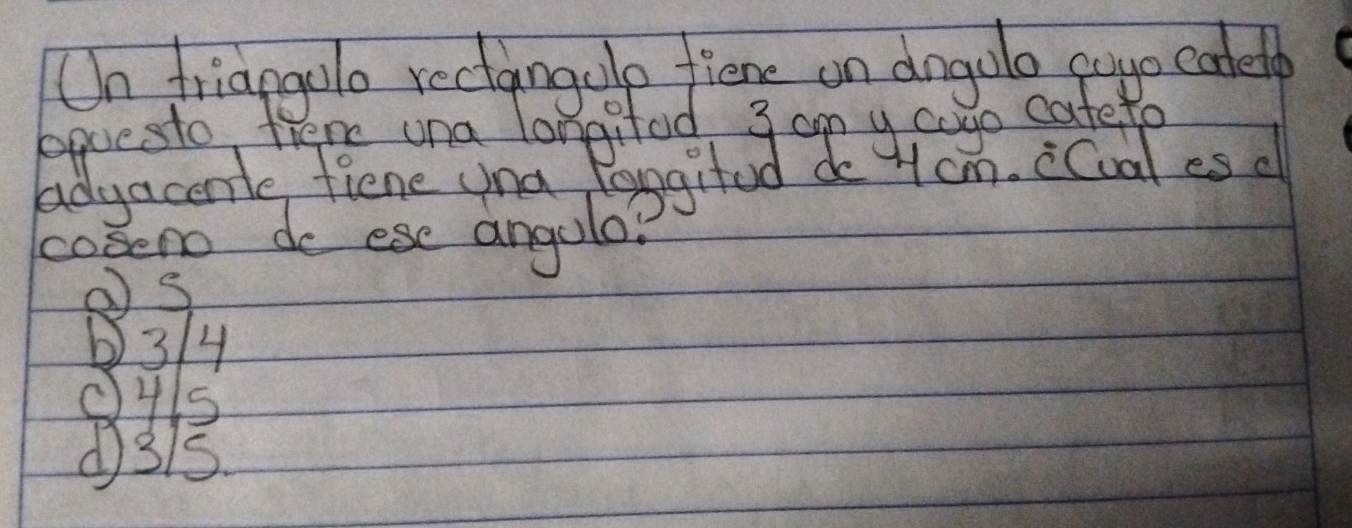 Un triángulo rectángulo tiene un ángulo cuyo cateto
opuesto, tiene una longitud 3 cm y cuyo cateto
adyacente, tiene una longitud de 4 cm. ¿Cual es el
coseno de ese angulo?
a) 5
b) 3/4
c) 4/5
d) 3/5.